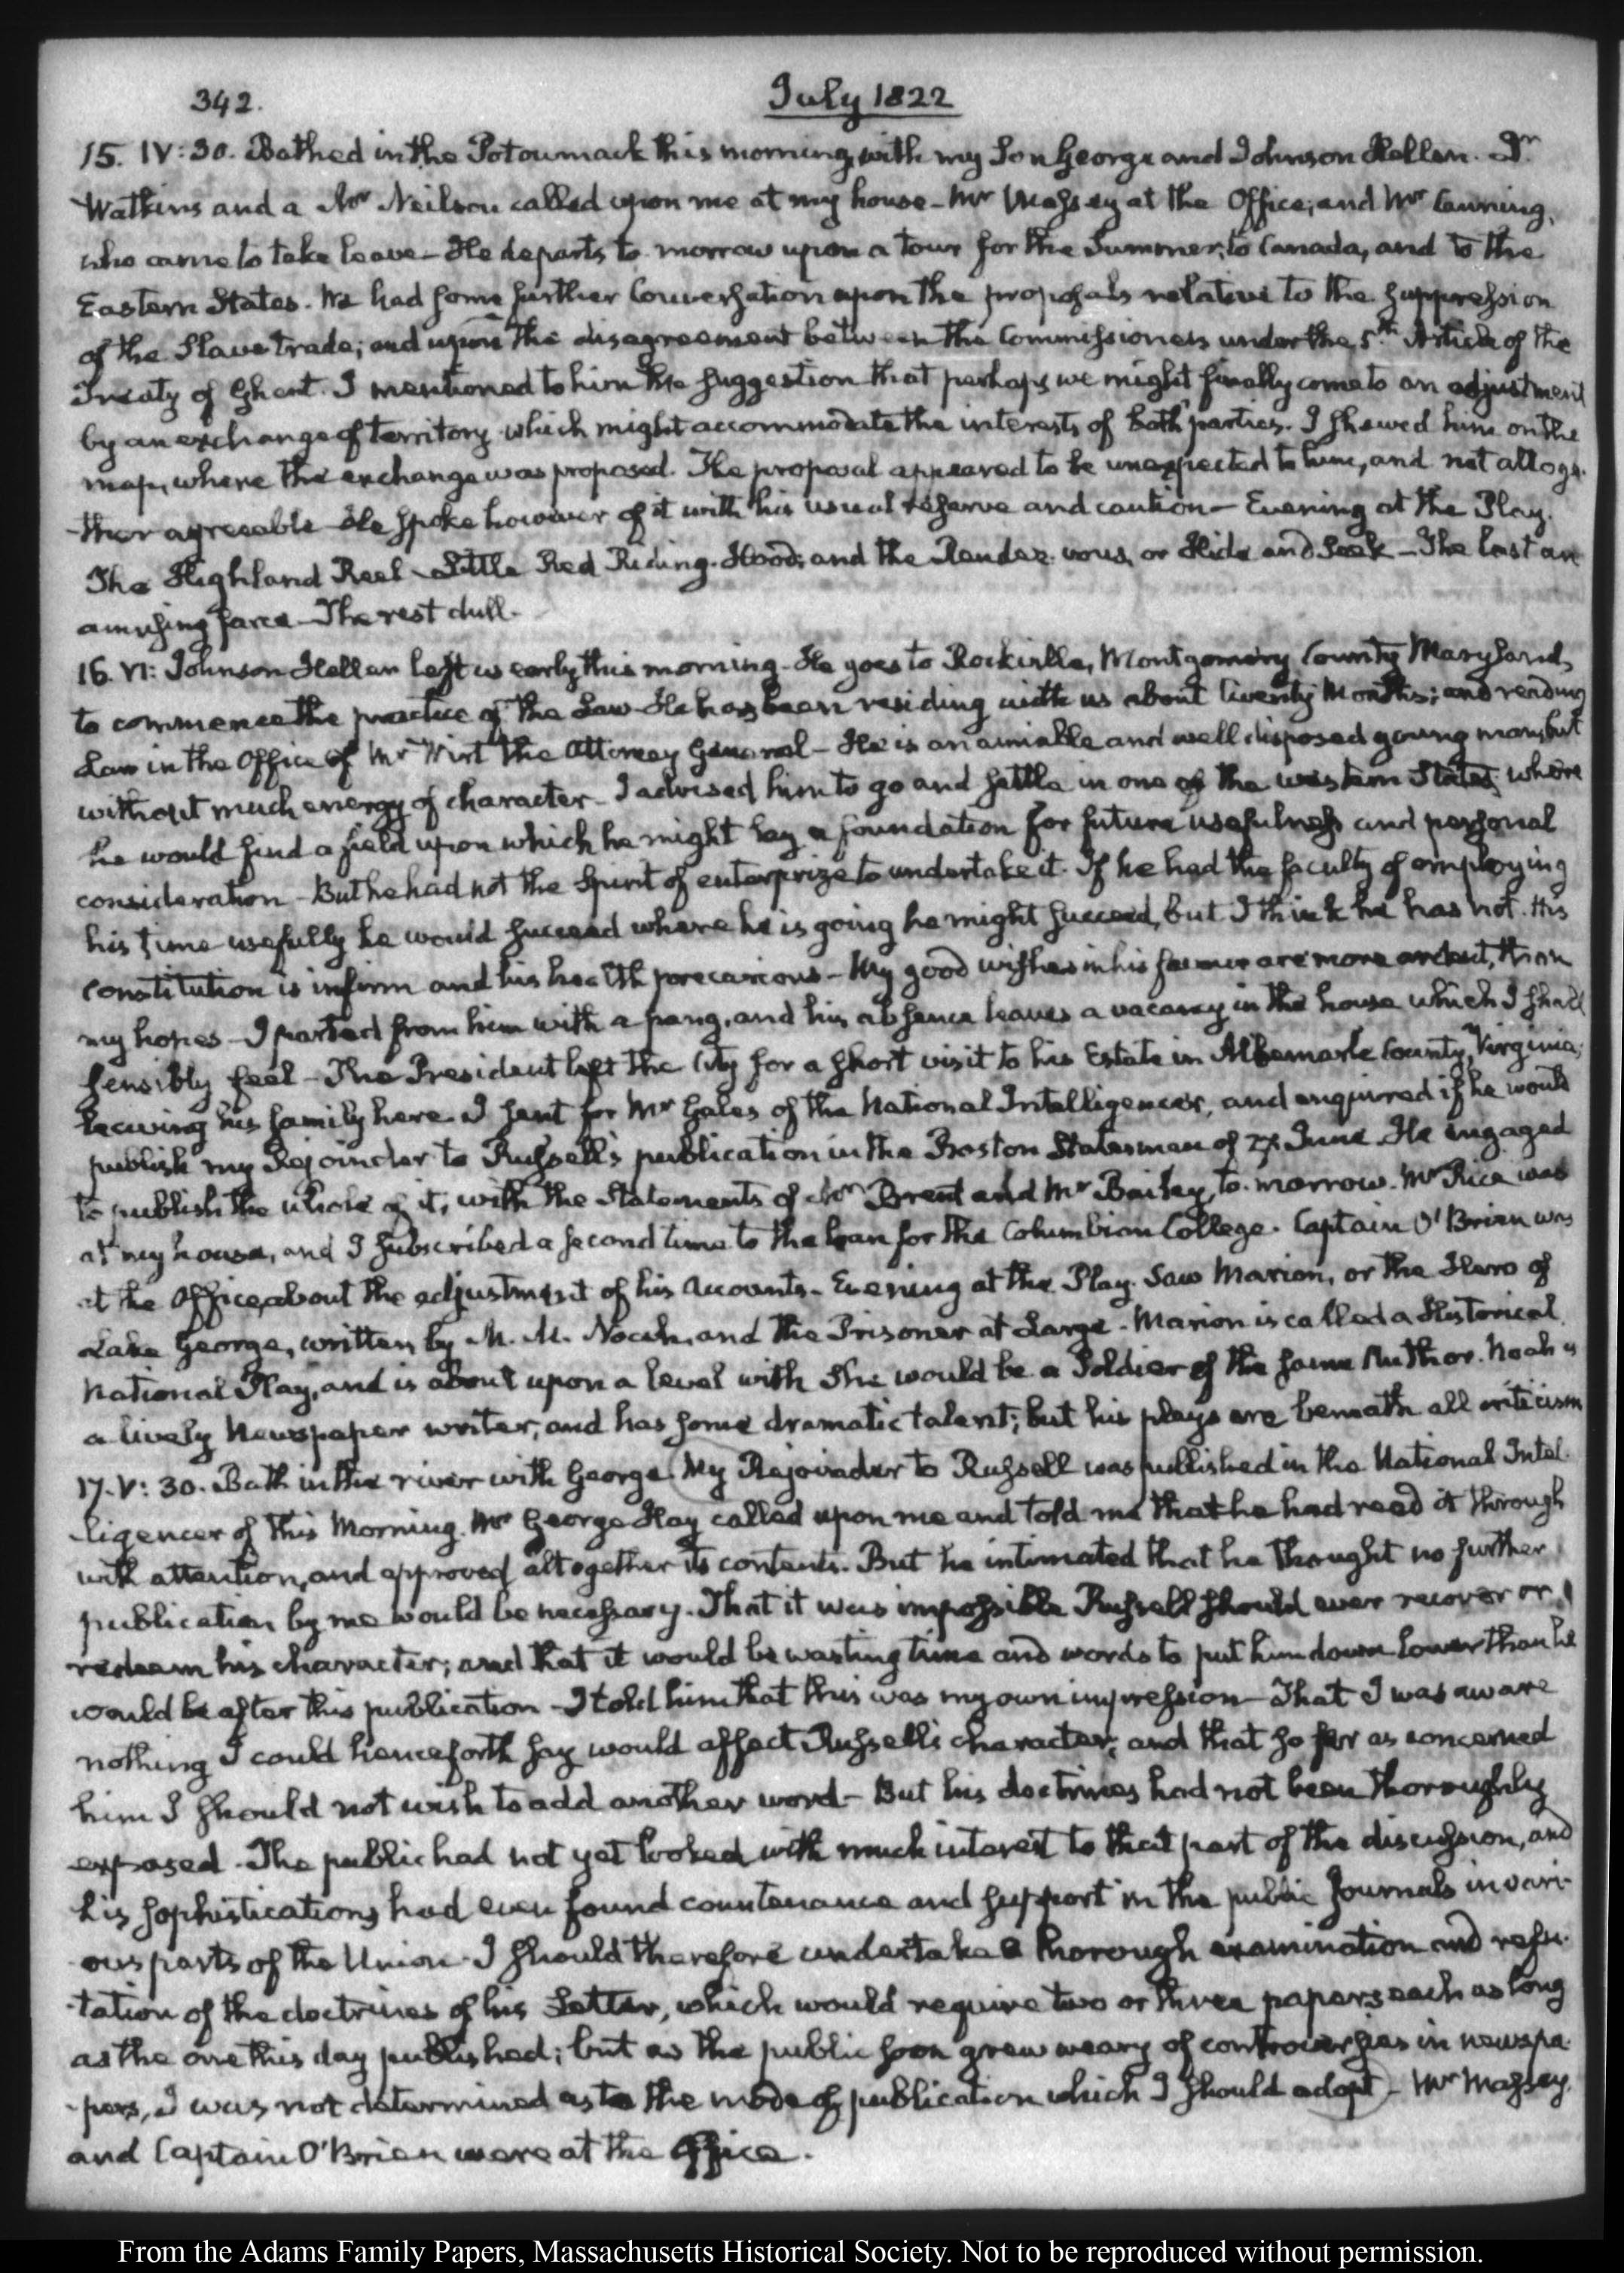 342.
July 1822
15. IV:30. Bathed in the Potowmack this morning, with my Son George and Johnson Hellen. Dr.
Watkins and a Mr Neilson called upon me at my house — Mr Massey at the Office, and Mr Canning,
who came to take leave — He departs to-morrow upon a tour for the Summer, to Canada, and to the
Eastern States. We had some further Conversation upon the proposals relative to the suppression
of the Slave trade; and upon the disagreement between the Commissioners under the 5th. Article of the
Treaty of Ghent. I mentioned to him the suggestion that perhaps we might finally come to an adjustment
by an exchange of territory which might accommodate the interests of both parties. I shewed him on the
map, where the exchange was proposed. The proposal appeared to be unexpected to him, and not altoge-
-ther agreeable — He spoke however of it with his usual reserve and caution — Evening at the Play.
The Highland Reel — Little Red Riding-Hood, and the Rendez-vous, or Hide and Seek — The last an
amusing farce — The rest dull.
16. VI: Johnson Hellen left us early this morning. He goes to Rockville, Montgomery County Maryland,
to commence the practice of the Law — He has been residing with us about twenty Months; and reading
Law in the Office of Mr Wirt the Attorney General — He is an amiable and well disposed young man, but
without much energy of character — I advised him to go and settle in one of the western States, where
he would find a field upon which he might lay a foundation for future usefulness and personal
consideration — But he had not the Spirit of enterprize to undertake it. If he had the faculty of employing
his time usefully he would succeed where he is going he might succeed, but I think he has not. His
constitution is infirm and his health precarious — My good wishes in his favour are more ardent, than
my hopes — I parted from him with a pang, and his absence leaves a vacancy in the house which I shall
sensibly feel — The President left the City for a short visit to his Estate in Albemarle County, Virginia;
leaving his family here. I sent for Mr Gales of the National Intelligencer, and enquired if he would
publish my Rejoinder to Russell's publication in the Boston Statesman of 27. June. He engaged
to publish the whole of it, with the Statements of Mr Brent and Mr Bailey, to-morrow. Mr Rice was
at my house, and I subscribed a second time to the loan for the Columbian College. Captain O'Brien was
at the Office, about the adjustment of his Accounts — Evening at the Play. Saw Marion, or the Hero of
Lake George, written by M. M. Noah, and the Prisoner at Large — Marion is called a Historical
National Play, and is about upon a level with She would be a Soldier of the same Author. Noah is
a lively Newspaper writer, and has some dramatic talent; but his plays are beneath all criticism
17. V:30. Bath in the river with George. My Rejoinder to Russell was published in the National Intel-
-ligencer of this Morning. Mr George Hay called upon me and told me that he had read it through
with attention, and approved altogether its contents. But he intimated that he thought no further
publication by me would be necessary. That it was impossible Russell should ever recover or
redeem his character; and that it would be wasting time and words to put him down lower than he
would be after this publication — I told him that this was my own impression — That I was aware
nothing I could henceforth say would affect Russell's character; and that so far as concerned
him I should not wish to add another word — But his doctrines had not been thoroughly
exposed. The public had not yet looked with much interest to that part of the discussion, and
his sophistications had even found countenance and support in the public Journals in vari-
ous parts of the Union. I should therefore undertake a thorough examination and refu-
-tation of the doctrines of his Letter, which would require two or three papers each as long
as the one this day published; but as the public soon grew weary of controversies in newspa-
-pers, I was not determined as to the mode of publication which I should adopt — Mr Massey
and Captain O'Brien were at the Office.
From the Adams Family Papers, Massachusetts Historical Society. Not to be reproduced without permission.